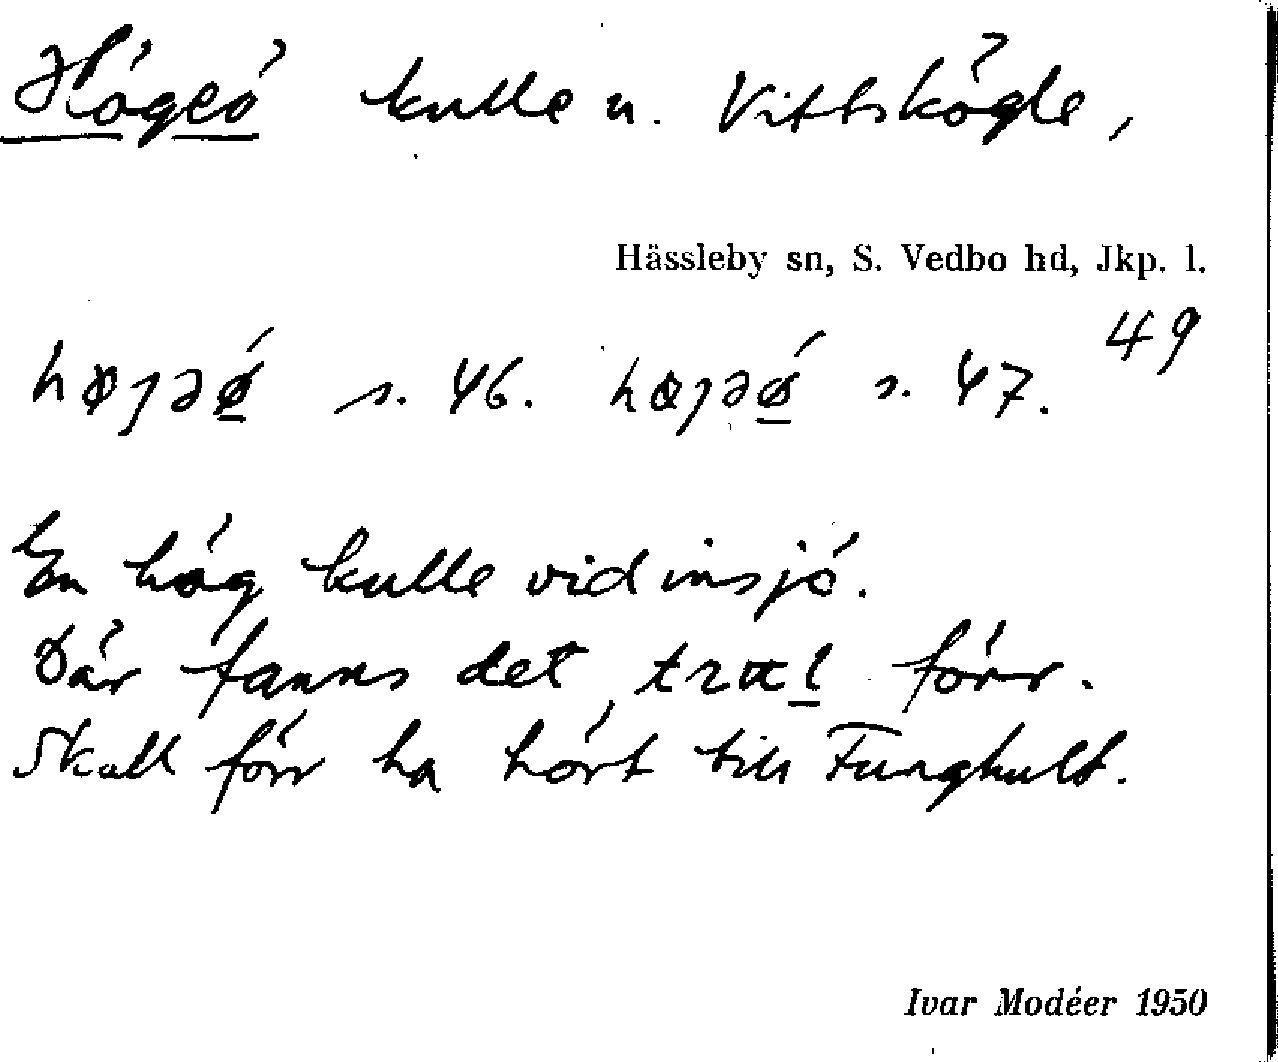 Högeö kulle u. Vittskögle,
Hässleby sn, S. Vedbo hd, Jkp. l.
49
høȷəǿ s. 46. høȷəǿ s. 47.
En hög kulle vid insjö.
Där fanns det förr.
Skall förr ha hört till Funghult.
Ivar Modéer 1950